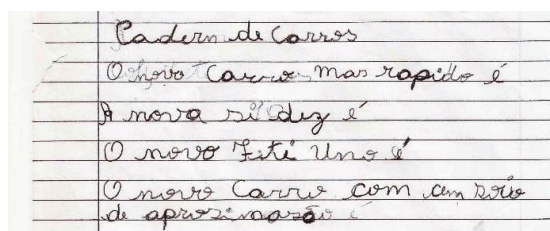 Cadern de Carros
O novo Carro mas rapido é
A nova si dez é
O novo Fiti Uno é
O novo Carro com cem soio
de aprosimasão é